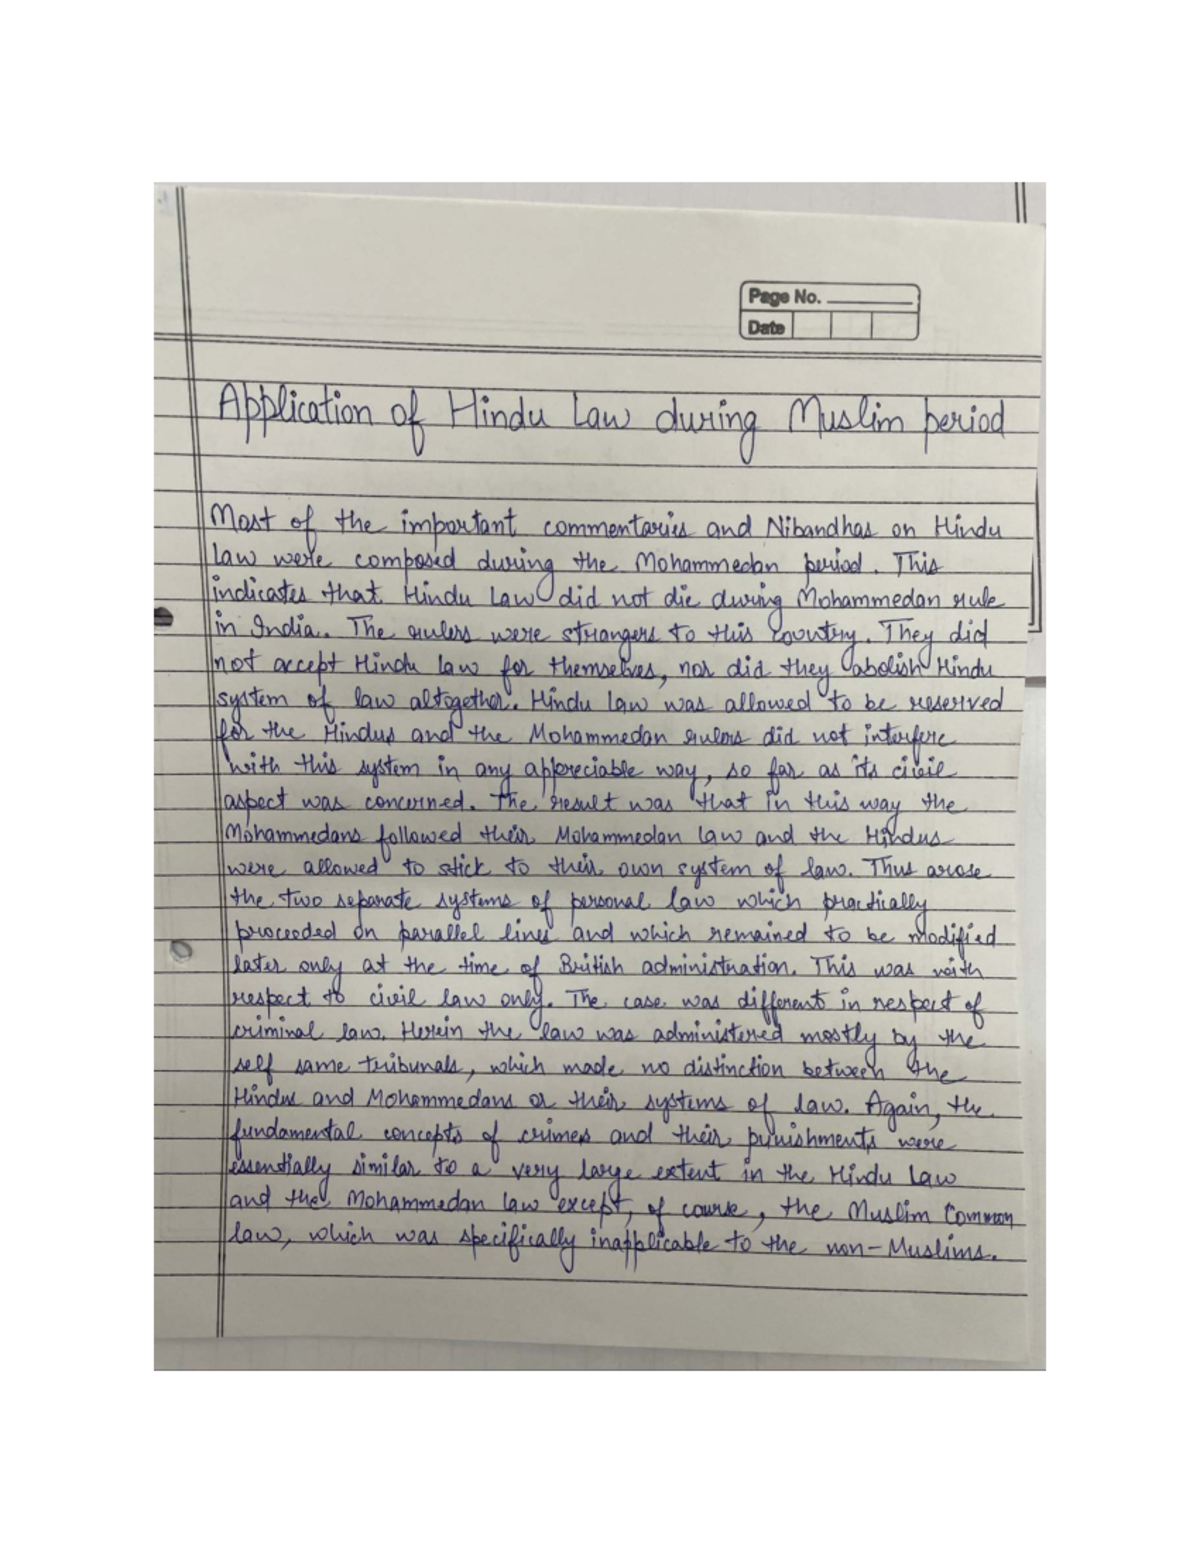 Page No.
Date
Application of Hindu Law during Muslim period
Most of the important commentaries and Nibandhas on Hindu
Law were composed during the Mohammedan period. This
indicates that Hindu Law did not die during Mohammedan rule
in India. The rulers were strangers to this country. They did
not accept Hindu law for themselves, nor did they abolish Hindu
system of law altogether. Hindu law was allowed to be reserved
for the Hindus and the Mohammedan rulers did not interfere
with this system in any appreciable way, so far as its civil
aspect was concerned. The result was that in this way the
Mohammedans followed their Mohammedan law and the Hindus
were allowed to stick to their own system of law. Thus arose
the two separate systems of personal law which practically
proceeded on parallel lines and which remained to be modified
later only at the time of British administration. This was with
respect to civil law only. The case was different in respect of
criminal law. Herein the law was administered mostly by the
self same tribunals, which made no distinction between the
Hindus and Mohammedans or their systems of law. Again, the
fundamental concepts of crimes and their punishments were
essentially similar to a very large extent in the Hindu Law
and the Mohammedan law except, of course, the Muslim Common
law, which was specifically inapplicable to the non-Muslims.